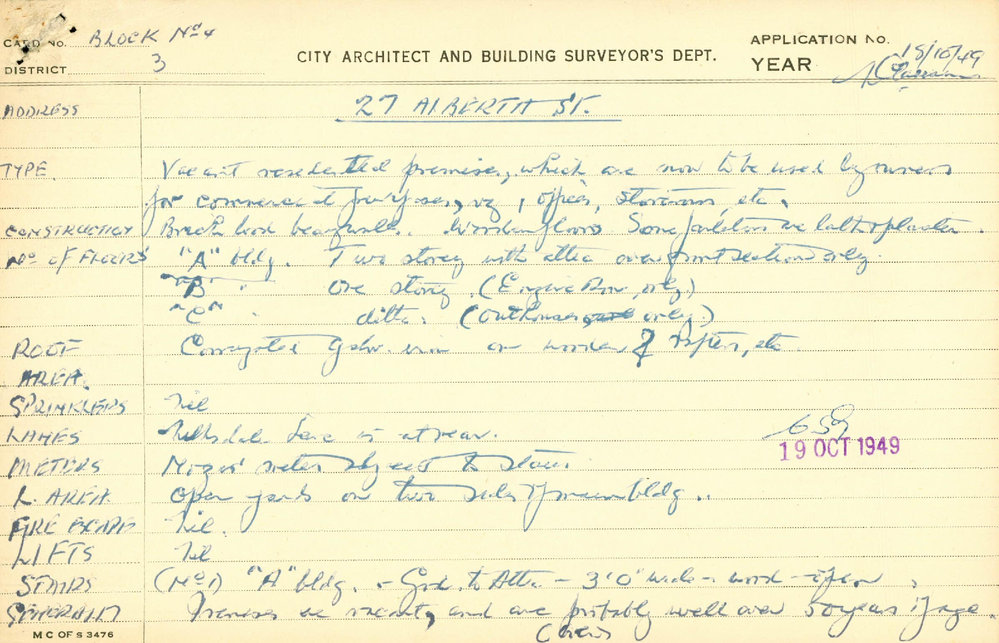 CARD NO. BLOCK No 4
DISTRICT 3
CITY ARCHITECT AND BUILDING SURVEYOR'S DEPT.
APPLICATION NO.
YEAR 18/10/49
ADDRESS 27 ALBERTA ST.
TYPE. Vacant residential premises, which are now to be used by owners
for commercial purposes, viz, offices, storerooms, etc.
CONSTRUCTION Brick load bearing walls. Wooden floors Some partitions are lath & plaster.
No OF FLOORS "A" bldg. Two storey with attic over front section only.
"B" " One storey (Engine Room only)
"C" " ditto. (Outhouses only)
ROOF Corrugated galv. iron on wooden rafters, etc
AREA.
SPRINKLERS Nil
LANES Lane is at rear.
19 OCT 1949
METERS meter adjacent to stairs
L. AREA Open yards on two sides of main bldg..
FIRE ESCAPES Nil.
LIFTS Nil
STAIRS (No 1) "A" bldg. - Grd. to Attic - 3'0" wide - wood - open.
GENERALLY Premises are vacant, and are probably well over 50 years of age.
(over)
M C OF S 3476